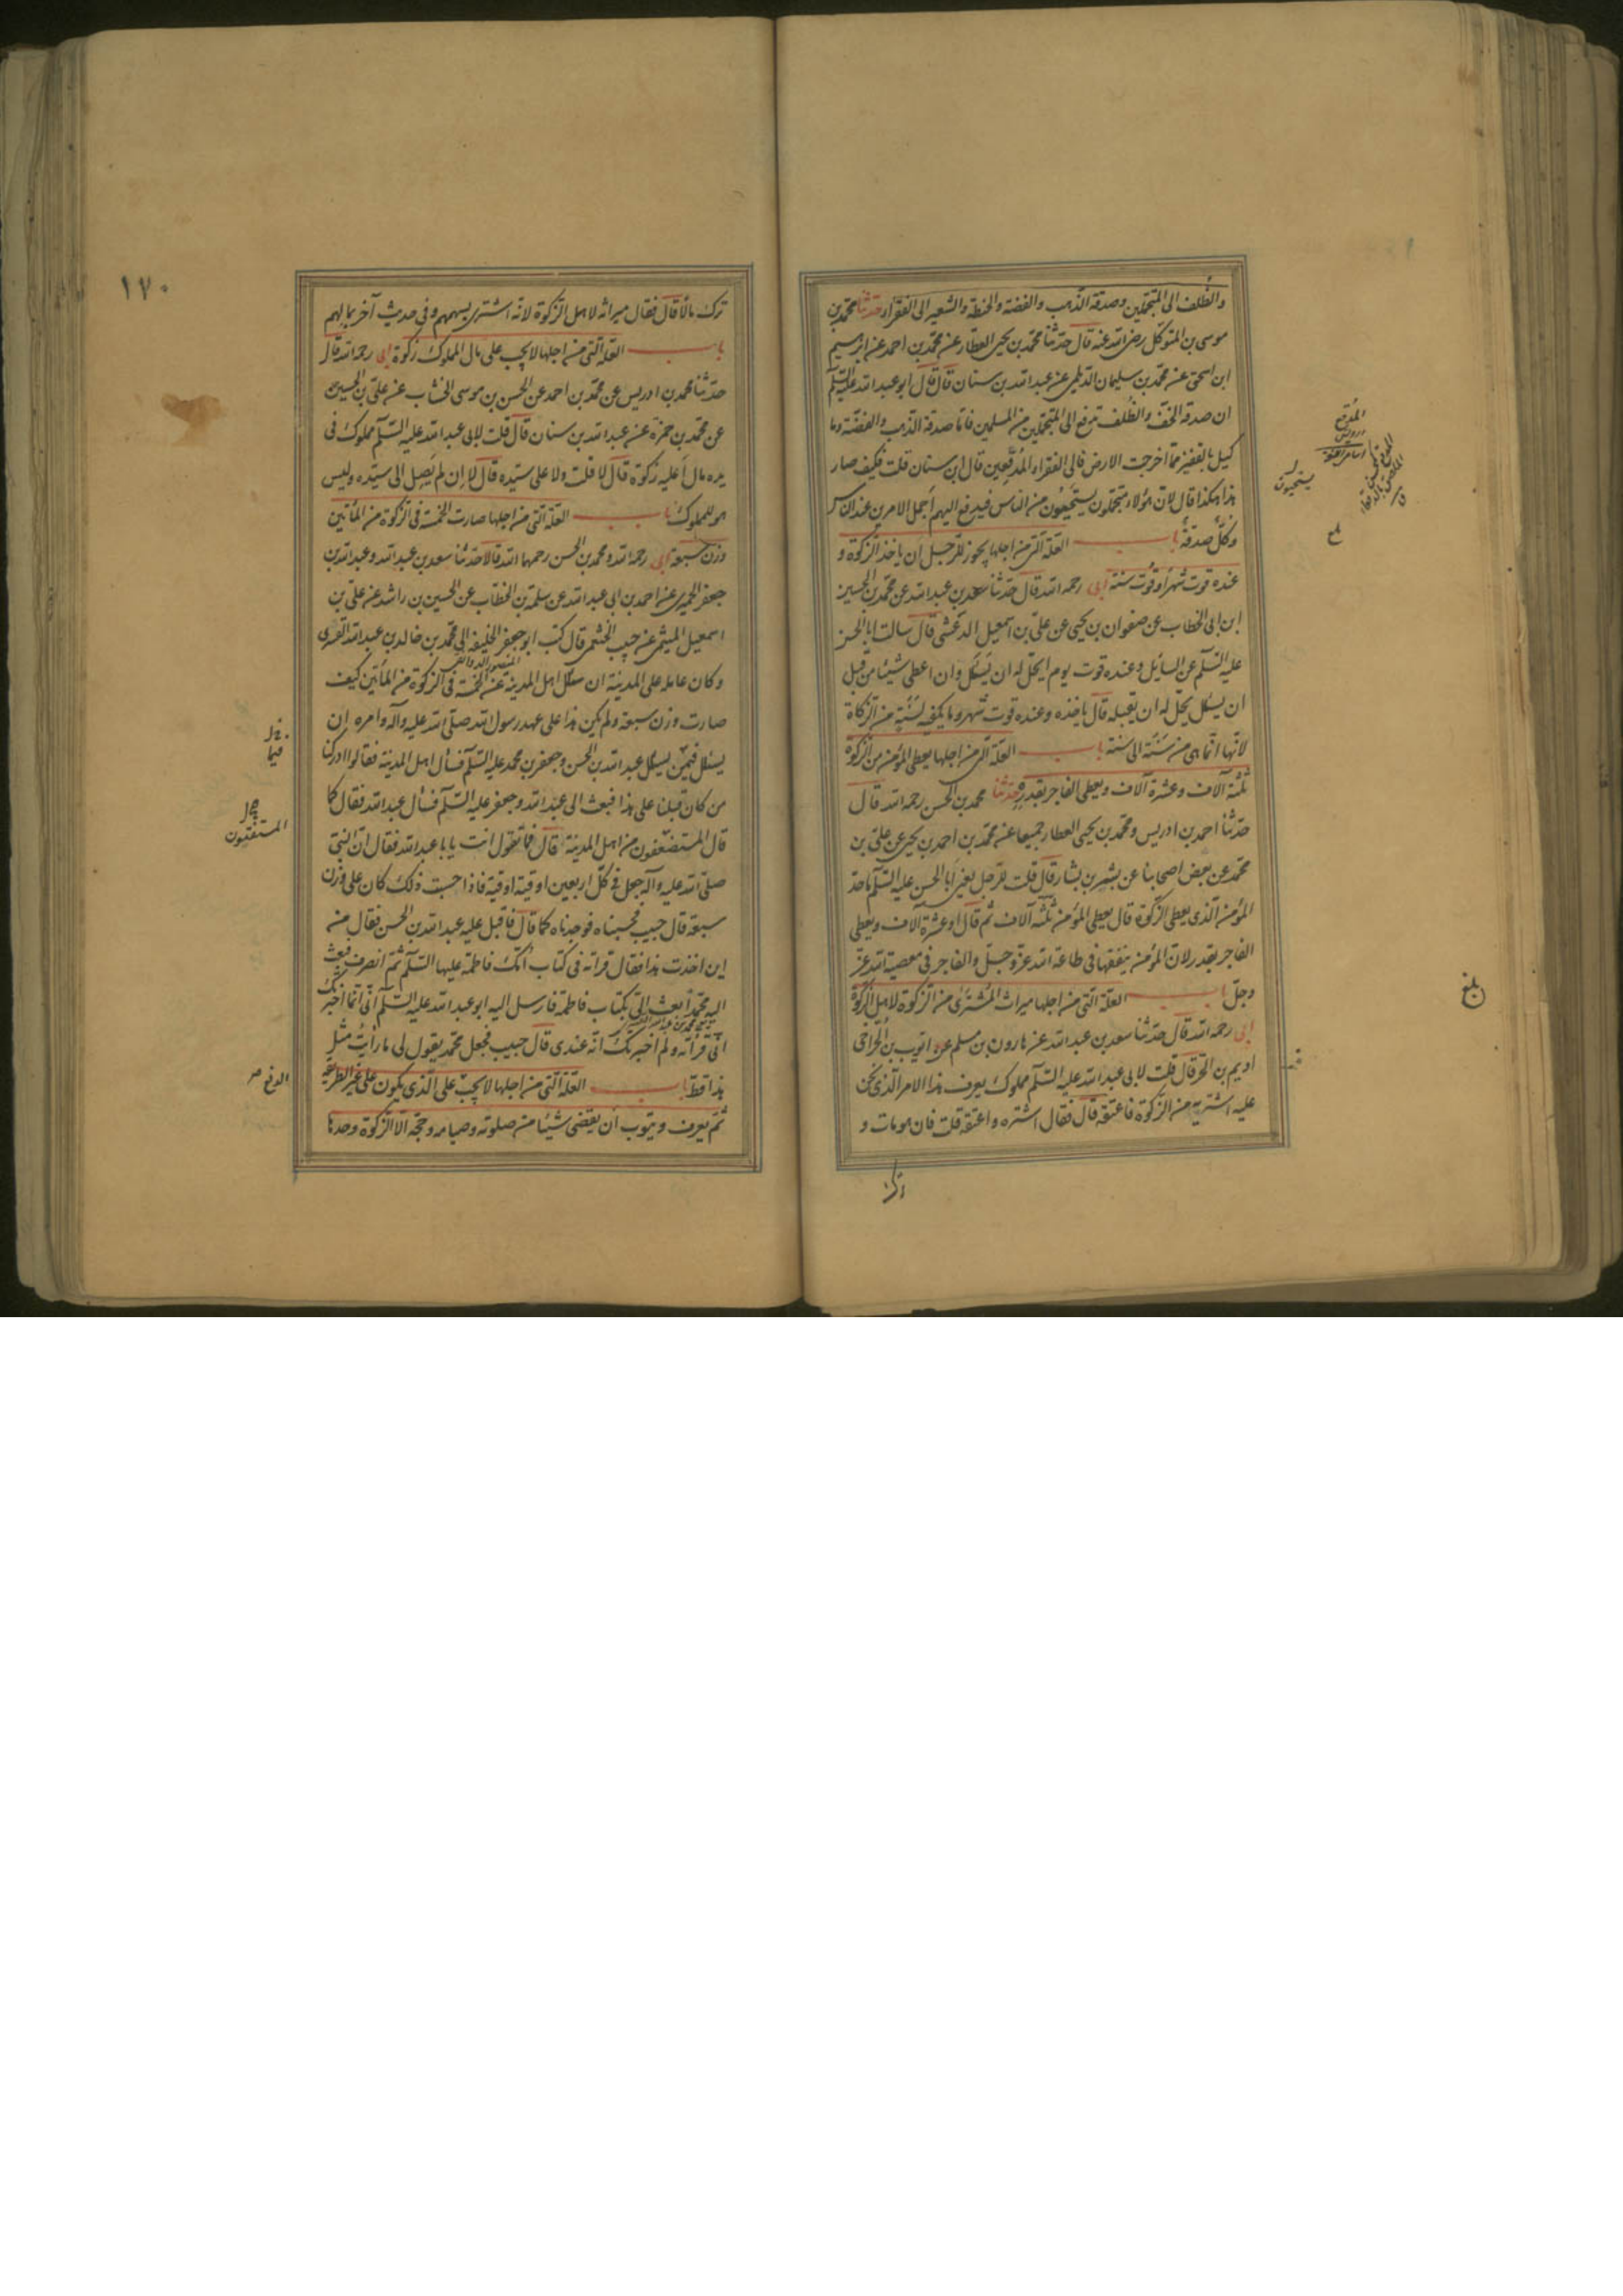 والظلف الى المتجملين وصدقة الذهب والفضة والحنطة والشعير الى الفقراء حدثنا محمد بن
موسى بن المتوكل رضى الله عنه قال حدثنا محمد بن يحيى العطار عن محمد بن احمد عن ابرهيم
ابن اسحق عن محمد بن سليمان الديلمى عن عبد الله بن سنان قال قال ابو عبد الله عليه السلم
ان صدقة الخف والظلف تدفع الى المتجملين من المسلمين فاما صدقة الذهب والفضة وما
كيل بالقفيز مما اخرجت الارض فالى الفقراء المدقعين قال ابن سنان قلت فكيف صار
هذا هكذا قال لان هؤلاء متجملون يستحيون من الناس فيدفع اليهم اجمل الامرين عند الناس
وكل صدقة باب العلة التى من اجلها يجوز للرجل ان ياخذ الزكوة و
عنده قوت شهر او قوت سنة ابى رحمه الله قال حدثنا سعد بن عبد الله عن محمد بن الحسين
ابن ابى الخطاب عن صفوان بن يحيى عن على بن اسمعيل الدغشى قال سالت ابا الحسن
عليه السلم عن السائل وعنده قوت يوم ايحل له ان يسئل وان اعطى شيئا من قبل
ان يسئل يحل له ان يقبله قال ياخذه وعنده قوت شهر وما يكفيه لسنته من الزكاة
لانها انما هى من سنة الى سنة باب العلة التى من اجلها يعطى المؤمن من الزكوة
ثلثة آلاف وعشرة آلاف ويعطى الفاجر بقدره حدثنا محمد بن الحسن رحمه الله قال
حدثنا احمد بن ادريس ومحمد بن يحيى العطار جميعا عن محمد بن احمد بن يحيى عن على بن
محمد عن بعض اصحابنا عن بشر بن بشار قال قلت للرجل يعنى ابا الحسن عليه السلم ما حد
المؤمن الذى يعطى الزكوة قال يعطى المؤمن ثلثة آلاف ثم قال او عشرة آلاف ويعطى
الفاجر بقدر لان المؤمن ينفقها فى طاعة الله عز وجل والفاجر فى معصية الله عز
وجل باب العلة التى من اجلها ميراث المشترى من الزكوة لاهل الزكوة
ابى رحمه الله قال حدثنا سعد بن عبد الله عن هارون بن مسلم عن ايوب بن الحر اخى
اديم بن الحر قال قلت لابى عبد الله عليه السلم مملوك يعرف هذا الامر الذى نحن
عليه اشتريه من الزكوة فاعتقه قال فقال اشتره واعتقه قلت فان هو مات و
ترك
المدقع
يستحيون
بلغ
١٧٠
ترك مالا قال فقال ميراثه لاهل الزكوة لانه اشترى بسهمهم وفى حديث آخر بمالهم
باب العلة التى من اجلها لا يجب على مال المملوك زكوة ابى رحمه الله قال
حدثنا محمد بن ادريس عن محمد بن احمد عن الحسن بن موسى الخشاب عن على بن الحسين
عن محمد بن حمزة عن عبد الله بن سنان قال قلت لابى عبد الله عليه السلم مملوك فى
يده مال اعليه زكوة قال لا قلت ولا على سيده قال لا ان لم يصل الى سيده وليس
هو للمملوك باب العلة التى من اجلها صارت الخمسة فى الزكوة من المأتين
وزن سبعة ابى رحمه الله ومحمد بن الحسن رحمهما الله قالا حدثنا سعد بن عبد الله وعبد الله بن
جعفر الحميرى عن احمد بن ابى عبد الله عن سلمة بن الخطاب عن الحسين بن راشد عن على بن
اسمعيل الميثمى عن حبيب الخثعمى قال كتب ابو جعفر الخليفة الى محمد بن خالد بن عبد الله القسرى
المنصور الدوانيقى
وكان عامله على المدينة ان سئل اهل المدينة عن الخمسة فى الزكوة من المأتين كيف
صارت وزن سبعة ولم يكن هذا على عهد رسول الله صلى الله عليه وآله وامره ان
يسئل فيمن يسئل عبد الله بن الحسن وجعفر بن محمد عليه السلم فسأل اهل المدينة فقالوا ادركنا
من كان قبلنا على هذا فبعث الى عبد الله وجعفر عليه السلم فسأل عبد الله فقال كما
قال المستضعفون من اهل المدينة قال فما تقول انت يابا عبد الله فقال ان النبى
صلى الله عليه وآله جعل فى كل اربعين اوقية اوقية فاذا حسبت ذلك كان على وزن
سبعة قال حبيب فحسبناه فوجدناه كما قال فاقبل عليه عبد الله بن الحسن فقال من
اين اخذت هذا فقال قراته فى كتاب امك فاطمة عليها السلم ثم انصرف فبعث
اليه محمد ابعث الى بكتاب فاطمة فارسل اليه ابو عبد الله عليه السلم انى انما اخبرتك
انى قرأته ولم اخبرتك انه عندى قال حبيب فجعل محمد يقول لى ما رأيت مثل
هذا قط باب العلة التى من اجلها لا يجب على الذى يكون على غير الطريقة
ثم يعرف ويتوب ان يقضى شيئا من صلوته وصيامه وحجه الا الزكوة وحدها
فيما
المستفتون